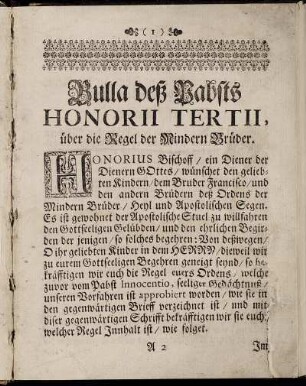 ( 1 )
Bulla deß Pabsts
HONORII TERTII,
über die Regel der Mindern Brüder.
HONORIUS Bischoff / ein Diener der
Dienern GOttes / wünschet den gelieb-
ten Kindern / dem Bruder Francisco / und
den andern Brüdern deß Ordens der
Mindern Brüder / Heyl und Apostolischen Segen.
Es ist gewohnet der Apostolische Stuel zu willfahren
den Gottseeligen Gelübden / und den ehrlichen Begir-
den der jenigen / so solches begehren: Von deßwegen /
O ihr geliebten Kinder in dem HERRN / dieweil wir
zu eurem Gottseeligen Begehren geneigt seynd / so be-
kräfftigen wir euch die Regel euers Ordens / welche
zuvor vom Pabst Innocentio, seeliger Gedächtnuß /
unseren Vorfahren ist approbiert worden / wie sie in
den gegenwärtigen Brieff verzeichnet ist / und mit
diser gegenwärtigen Schrifft bekräfftigen wir sie euch /
welcher Regel Innhalt ist / wie folget.
A 2 Im